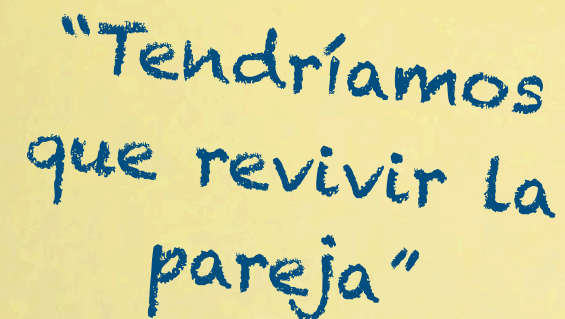 "Tendríamos
que revivir la
pareja"